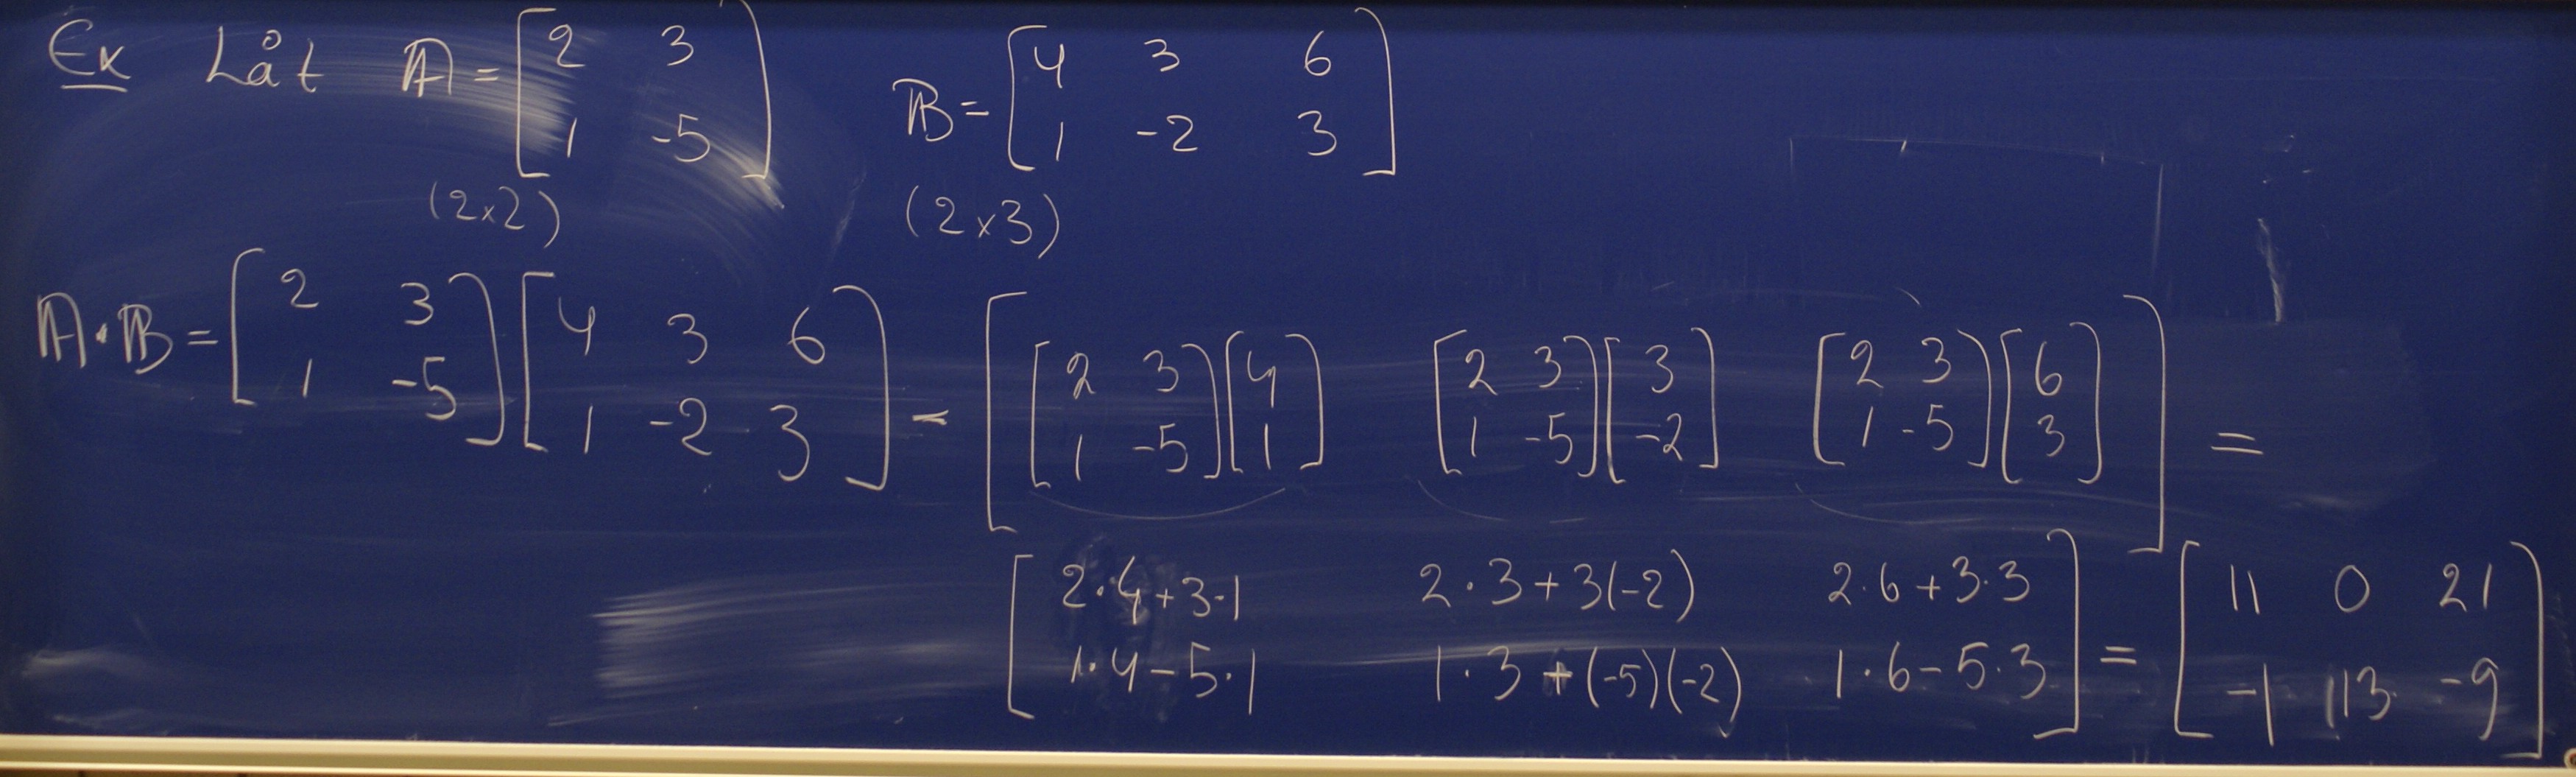 Ex Låt A = [2 3; 1 -5] B = [4 3 6; 1 -2 3]
(2×2) (2×3)
A·B = [2 3; 1 -5] [4 3 6; 1 -2 3] = [[2 3; 1 -5][4; 1] [2 3; 1 -5][3; -2] [2 3; 1 -5][6; 3]] =
[2·4+3·1 2·3+3(-2) 2·6+3·3; 1·4-5·1 1·3+(-5)(-2) 1·6-5·3] = [11 0 21; -1 13 -9]